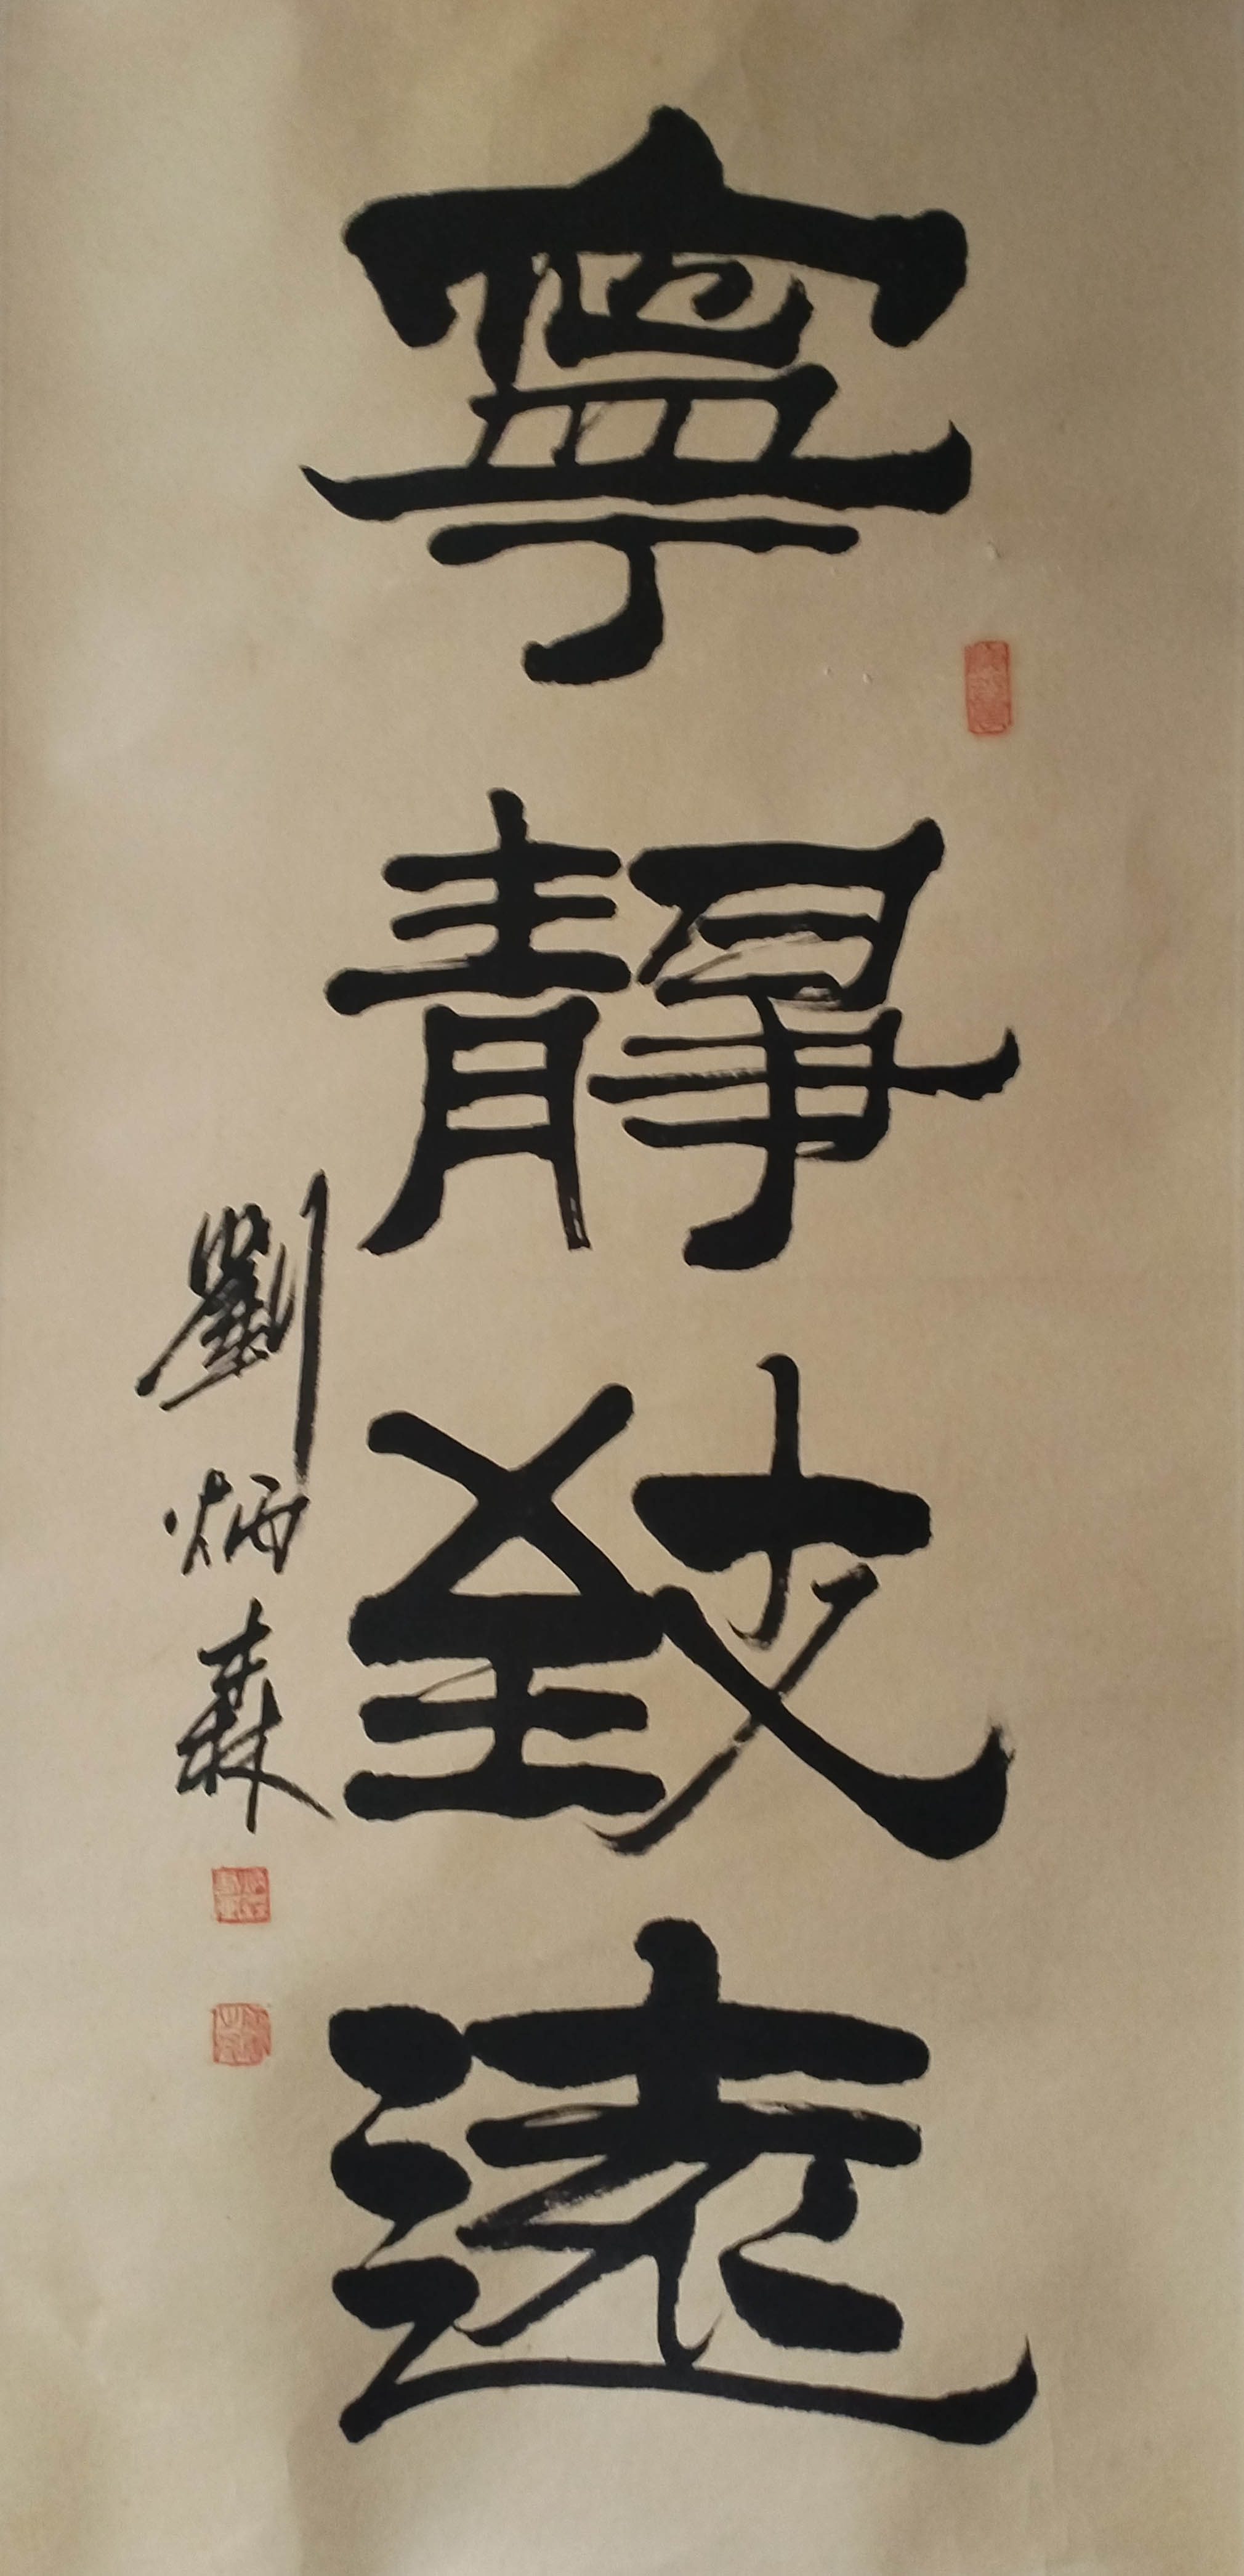 寧靜致遠
劉炳森